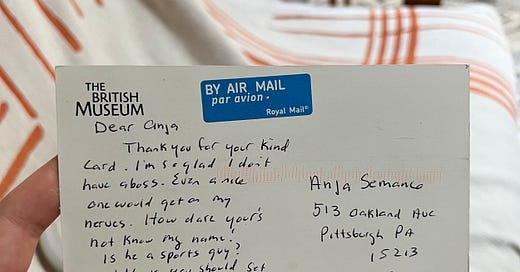 THE
BRITISH
MUSEUM
BY AIR MAIL
par avion
Royal Mail®
Dear Anja
Thank you for your kind
card. I'm so glad I don't
have a boss. Even a nice
one would get on my
nerves. How dare yours
not know my name!
Is he a sports guy?
you should get
Anja Semanco
513 Oakland Ave
Pittsburgh PA
15213